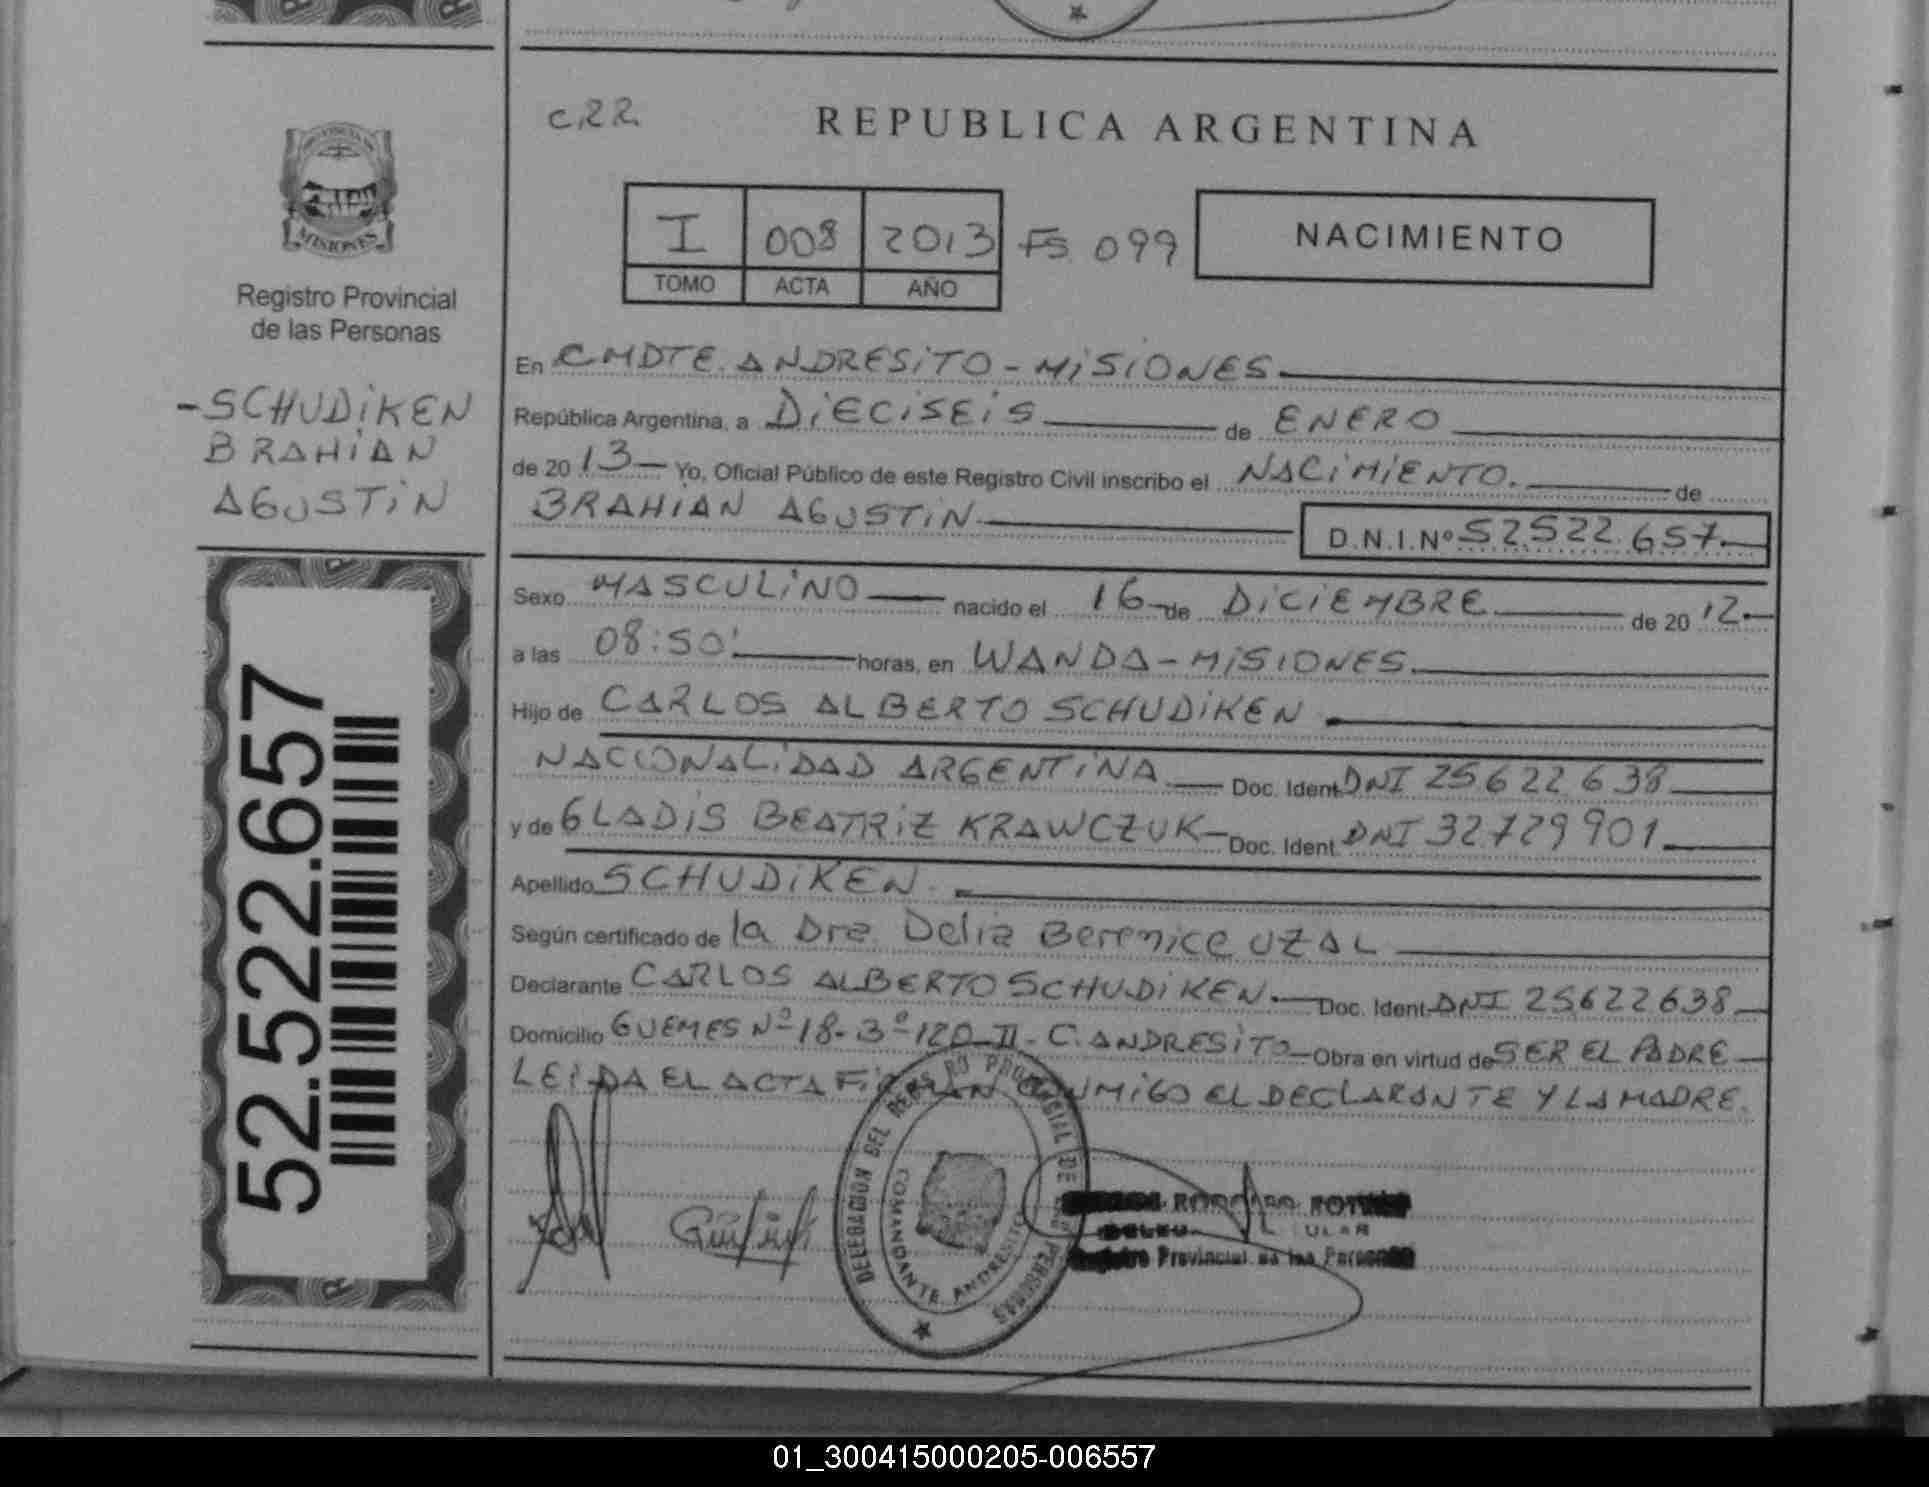 MISIONES
Registro Provincial
de las Personas
-SCHUDIKEN
BRAHIAN
AGUSTIN
52.522.657
CRR
REPUBLICA ARGENTINA
I 008 2013 FS 099
TOMO ACTA AÑO
NACIMIENTO
En CMDTE. ANDRESITO - MISIONES
República Argentina, a DIECISEIS de ENERO
de 20 13 Yo, Oficial Público de este Registro Civil inscribo el NACIMIENTO. de
BRAHIAN AGUSTIN D.N.I.Nº 52.522.657.
Sexo MASCULINO nacido el 16 de DICIEMBRE de 20 12.
a las 08:50' horas, en WANDA - MISIONES.
Hijo de CARLOS ALBERTO SCHUDIKEN
NACIONALIDAD ARGENTINA Doc. Ident. DNI 25622638
y de GLADIS BEATRIZ KRAWCZUK Doc. Ident. DNI 32729901
Apellido SCHUDIKEN.
Según certificado de la Dra. Delia Berenice UZAL
Declarante CARLOS ALBERTO SCHUDIKEN. Doc. Ident. DNI 25622638
Domicilio GUEMES Nº 18-3º-120-II-C. ANDRESITO Obra en virtud de SER EL PADRE
LEIDA EL ACTA FIRMAN CONMIGO EL DECLARANTE Y LA MADRE.
DELEGACION DEL REGISTRO PROVINCIAL DE LAS PERSONAS
COMANDANTE ANDRESITO
Registro Provincial de las Personas
01_300415000205-006557